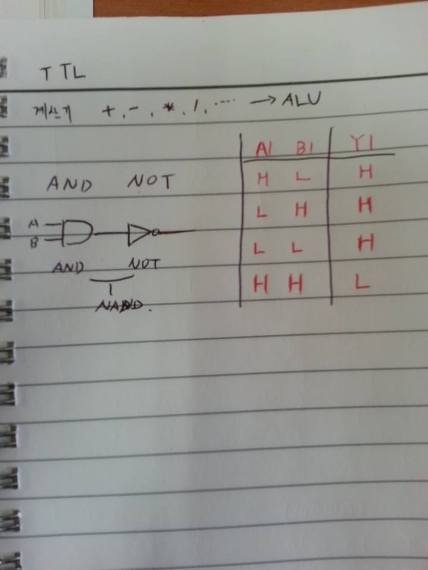 TTL
계산기 +, -, *, /, ···· → ALU
A1 B1 Y1
H L H
L H H
L L H
H H L
AND NOT
A
B
AND NOT
NAND.